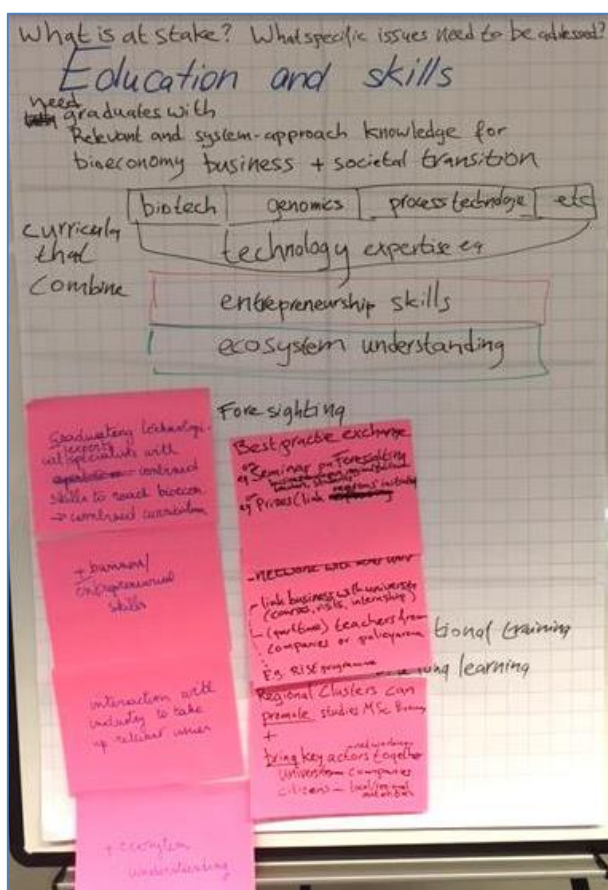 What is at stake? What specific issues need to be addressed?
Education and skills
need
graduates with
Relevant and system-approach knowledge for
bioeconomy business + societal transition
biotech genomics process technologie etc
curricula
that
combine
technology expertise eg
entrepreneurship skills
ecosystem understanding
Foresighting
Graduating technologi-
cal specialists with
experts
combined
skills to reach bioecon
→ combined curriculum
+ business/
entrepreneurial
skills
interaction with
industry to take
up relevant issues
+ ecosystem
understanding
Best practice exchange
eg Seminar on Foresighting
eg Prizes (link
- network with
- link business with universit
(courses, visits, internship)
- (part time) teachers from
companies or policy
E.g. RISE programme
tional training
long learning
Regional Clusters can
promote studies MSc
+
bring key actors together
companies
citizens - local/regional